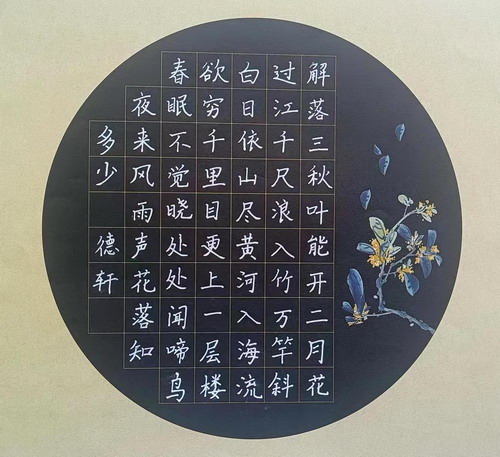 解落三秋叶能开二月花
过江千尺浪入竹万竿斜
白日依山尽黄河入海流
欲穷千里目更上一层楼
春眠不觉晓处处闻啼鸟
夜来风雨声花落知
多少 德轩